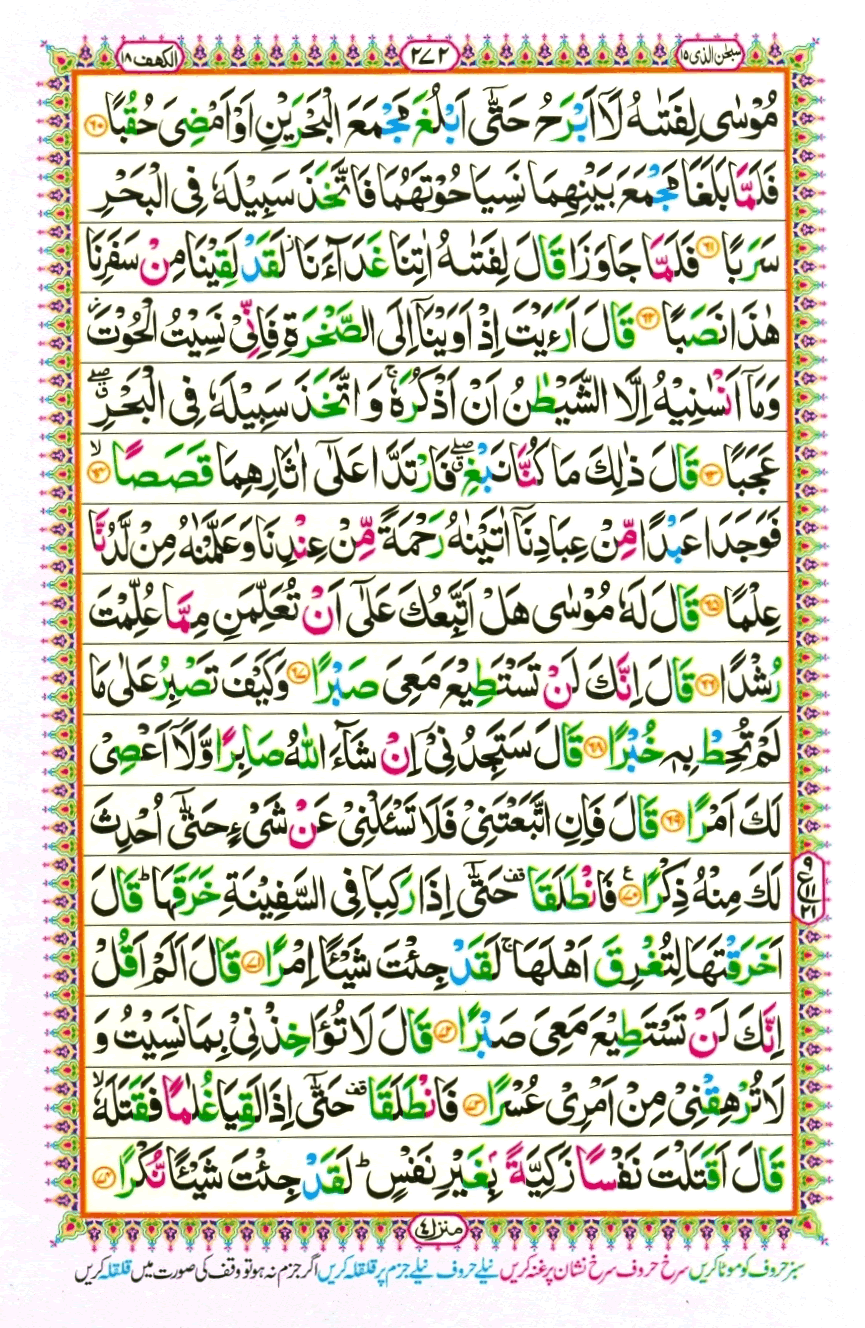 سبحٰن الذی ۱۵
۲۷۲
الکهف ۱۸
مُوْسٰى لِفَتٰىهُ لَاۤ اَبْرَحُ حَتّٰۤى اَبْلُغَ مَجْمَعَ الْبَحْرَيْنِ اَوْ اَمْضِىَ حُقُبًا ﴿۶۰﴾
فَلَمَّا بَلَغَا مَجْمَعَ بَيْنِهِمَا نَسِيَا حُوْتَهُمَا فَاتَّخَذَ سَبِيْلَهٗ فِى الْبَحْرِ
سَرَبًا ﴿۶۱﴾ فَلَمَّا جَاوَزَا قَالَ لِفَتٰىهُ اٰتِنَا غَدَآءَنَا ز لَقَدْ لَقِيْنَا مِنْ سَفَرِنَا
هٰذَا نَصَبًا ﴿۶۲﴾ قَالَ اَرَءَيْتَ اِذْ اَوَيْنَاۤ اِلَى الصَّخْرَةِ فَاِنِّىْ نَسِيْتُ الْحُوْتَ ز
وَمَاۤ اَنْسٰىنِيْهُ اِلَّا الشَّيْطٰنُ اَنْ اَذْكُرَهٗ ۚ وَ اتَّخَذَ سَبِيْلَهٗ فِى الْبَحْرِ ۖق
عَجَبًا ﴿۶۳﴾ قَالَ ذٰلِكَ مَا كُنَّا نَبْغِ ۖق فَارْتَدَّا عَلٰۤى اٰثَارِهِمَا قَصَصًا ۙ﴿۶۴﴾
فَوَجَدَا عَبْدًا مِّنْ عِبَادِنَاۤ اٰتَيْنٰهُ رَحْمَةً مِّنْ عِنْدِنَا وَعَلَّمْنٰهُ مِنْ لَّدُنَّا
عِلْمًا ﴿۶۵﴾ قَالَ لَهٗ مُوْسٰى هَلْ اَتَّبِعُكَ عَلٰۤى اَنْ تُعَلِّمَنِ مِمَّا عُلِّمْتَ
رُشْدًا ﴿۶۶﴾ قَالَ اِنَّكَ لَنْ تَسْتَطِيْعَ مَعِىَ صَبْرًا ﴿۶۷﴾ وَكَيْفَ تَصْبِرُ عَلٰى مَا
لَمْ تُحِطْ بِهٖ خُبْرًا ﴿۶۸﴾ قَالَ سَتَجِدُنِىْۤ اِنْ شَآءَ اللّٰهُ صَابِرًا وَّلَاۤ اَعْصِىْ
لَكَ اَمْرًا ﴿۶۹﴾ قَالَ فَاِنِ اتَّبَعْتَنِىْ فَلَا تَسْـَٔلْنِىْ عَنْ شَىْءٍ حَتّٰۤى اُحْدِثَ
لَكَ مِنْهُ ذِكْرًا ﴿۷۰﴾ع فَانْطَلَقَا قف حَتّٰۤى اِذَا رَكِبَا فِى السَّفِيْنَةِ خَرَقَهَا ؕ قَالَ
۹ ع ۱۱ ۲۱
اَخَرَقْتَهَا لِتُغْرِقَ اَهْلَهَا ۚ لَقَدْ جِئْتَ شَيْـًٔا اِمْرًا ﴿۷۱﴾ قَالَ اَلَمْ اَقُلْ
اِنَّكَ لَنْ تَسْتَطِيْعَ مَعِىَ صَبْرًا ﴿۷۲﴾ قَالَ لَا تُؤَاخِذْنِىْ بِمَا نَسِيْتُ وَ
لَا تُرْهِقْنِىْ مِنْ اَمْرِىْ عُسْرًا ﴿۷۳﴾ فَانْطَلَقَا قف حَتّٰۤى اِذَا لَقِيَا غُلٰمًا فَقَتَلَهٗ ۙ
قَالَ اَقَتَلْتَ نَفْسًا زَكِيَّةًۢ بِغَيْرِ نَفْسٍ ؕ لَقَدْ جِئْتَ شَيْـًٔا نُّكْرًا ﴿۷۴﴾
منزل ٤
سبز حروف کو موٹا کریں سرخ حروف سرخ نشان پر غنہ کریں نیلے حروف نیلے جزم پر قلقلہ کریں اگر جزم نہ ہو تو وقف کی صورت میں قلقلہ کریں